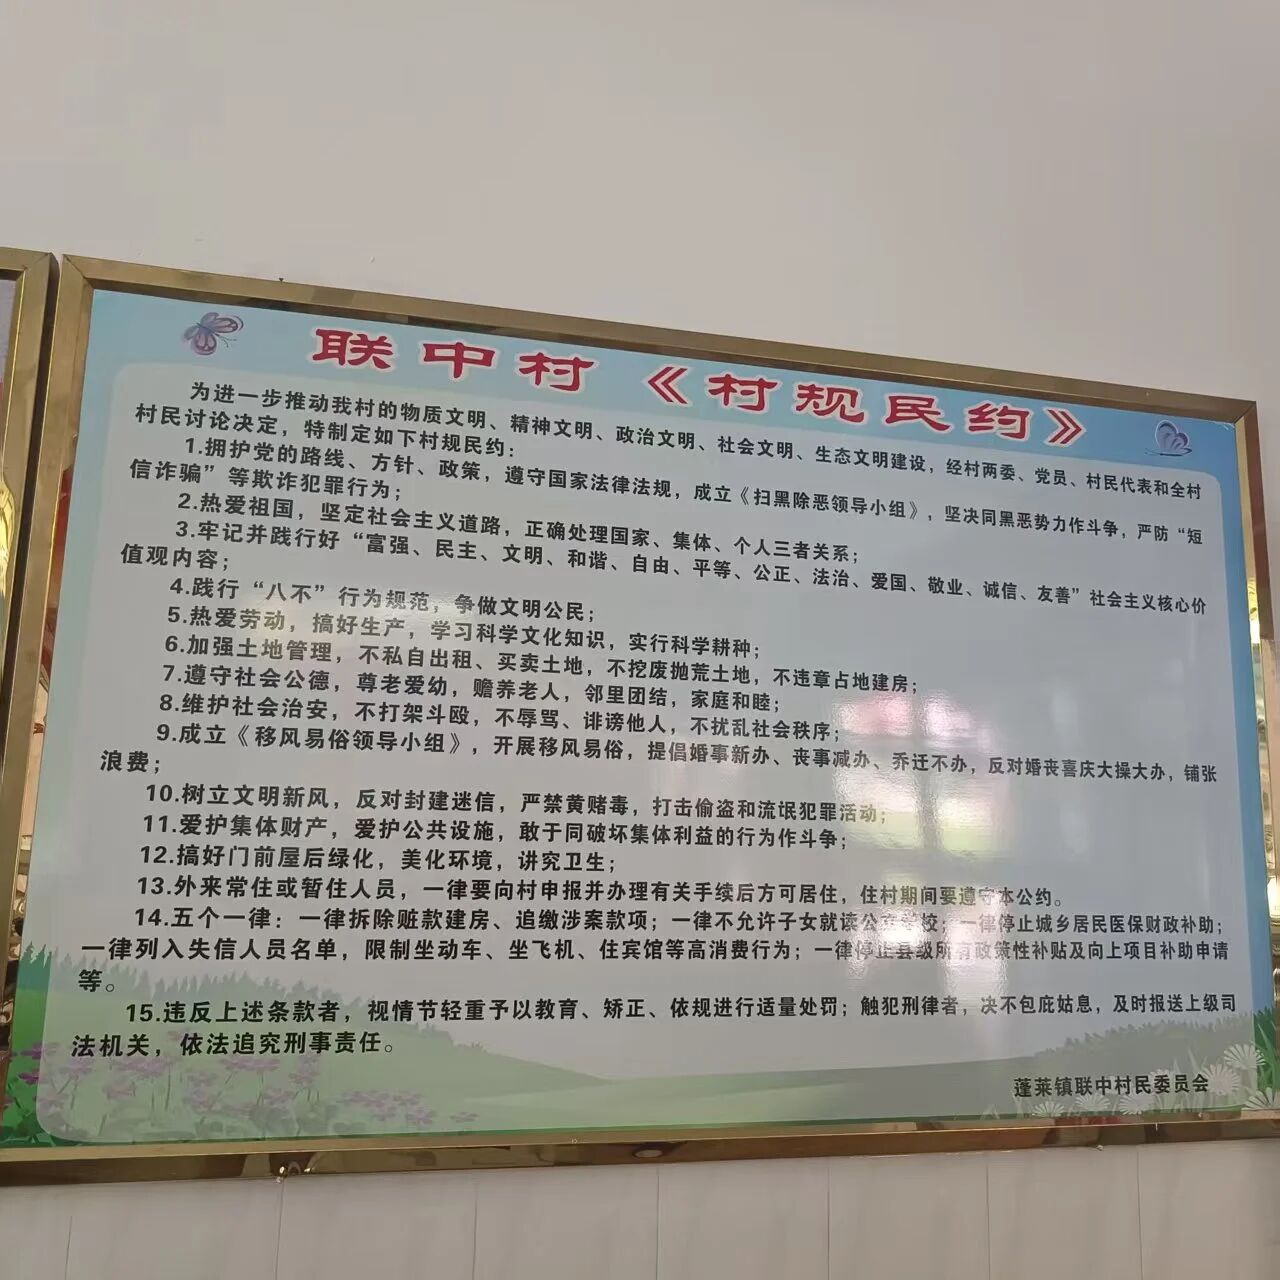 联中村《村规民约》
为进一步推动我村的物质文明、精神文明、政治文明、社会文明、生态文明建设，经村两委、党员、村民代表和全村
村民讨论决定，特制定如下村规民约：
1.拥护党的路线、方针、政策，遵守国家法律法规，成立《扫黑除恶领导小组》，坚决同黑恶势力作斗争，严防“短
信诈骗”等欺诈犯罪行为；
2.热爱祖国，坚定社会主义道路，正确处理国家、集体、个人三者关系；
3.牢记并践行好“富强、民主、文明、和谐、自由、平等、公正、法治、爱国、敬业、诚信、友善”社会主义核心价
值观内容；
4.践行“八不”行为规范，争做文明公民；
5.热爱劳动，搞好生产，学习科学文化知识，实行科学耕种；
6.加强土地管理，不私自出租、买卖土地，不挖废抛荒土地，不违章占地建房；
7.遵守社会公德，尊老爱幼，赡养老人，邻里团结，家庭和睦；
8.维护社会治安，不打架斗殴，不辱骂、诽谤他人，不扰乱社会秩序；
9.成立《移风易俗领导小组》，开展移风易俗，提倡婚事新办、丧事减办、乔迁不办，反对婚丧喜庆大操大办，铺张
浪费；
10.树立文明新风，反对封建迷信，严禁黄赌毒，打击偷盗和流氓犯罪活动；
11.爱护集体财产，爱护公共设施，敢于同破坏集体利益的行为作斗争；
12.搞好门前屋后绿化，美化环境，讲究卫生；
13.外来常住或暂住人员，一律要向村申报并办理有关手续后方可居住，住村期间要遵守本公约。
14.五个一律：一律拆除赃款建房、追缴涉案款项；一律不允许子女就读公立学校；一律停止城乡居民医保财政补助；
一律列入失信人员名单，限制坐动车、坐飞机、住宾馆等高消费行为；一律停止县级所有政策性补贴及向上项目补助申请
等。
15.违反上述条款者，视情节轻重予以教育、矫正、依规进行适量处罚；触犯刑律者，决不包庇姑息，及时报送上级司
法机关，依法追究刑事责任。
蓬莱镇联中村民委员会